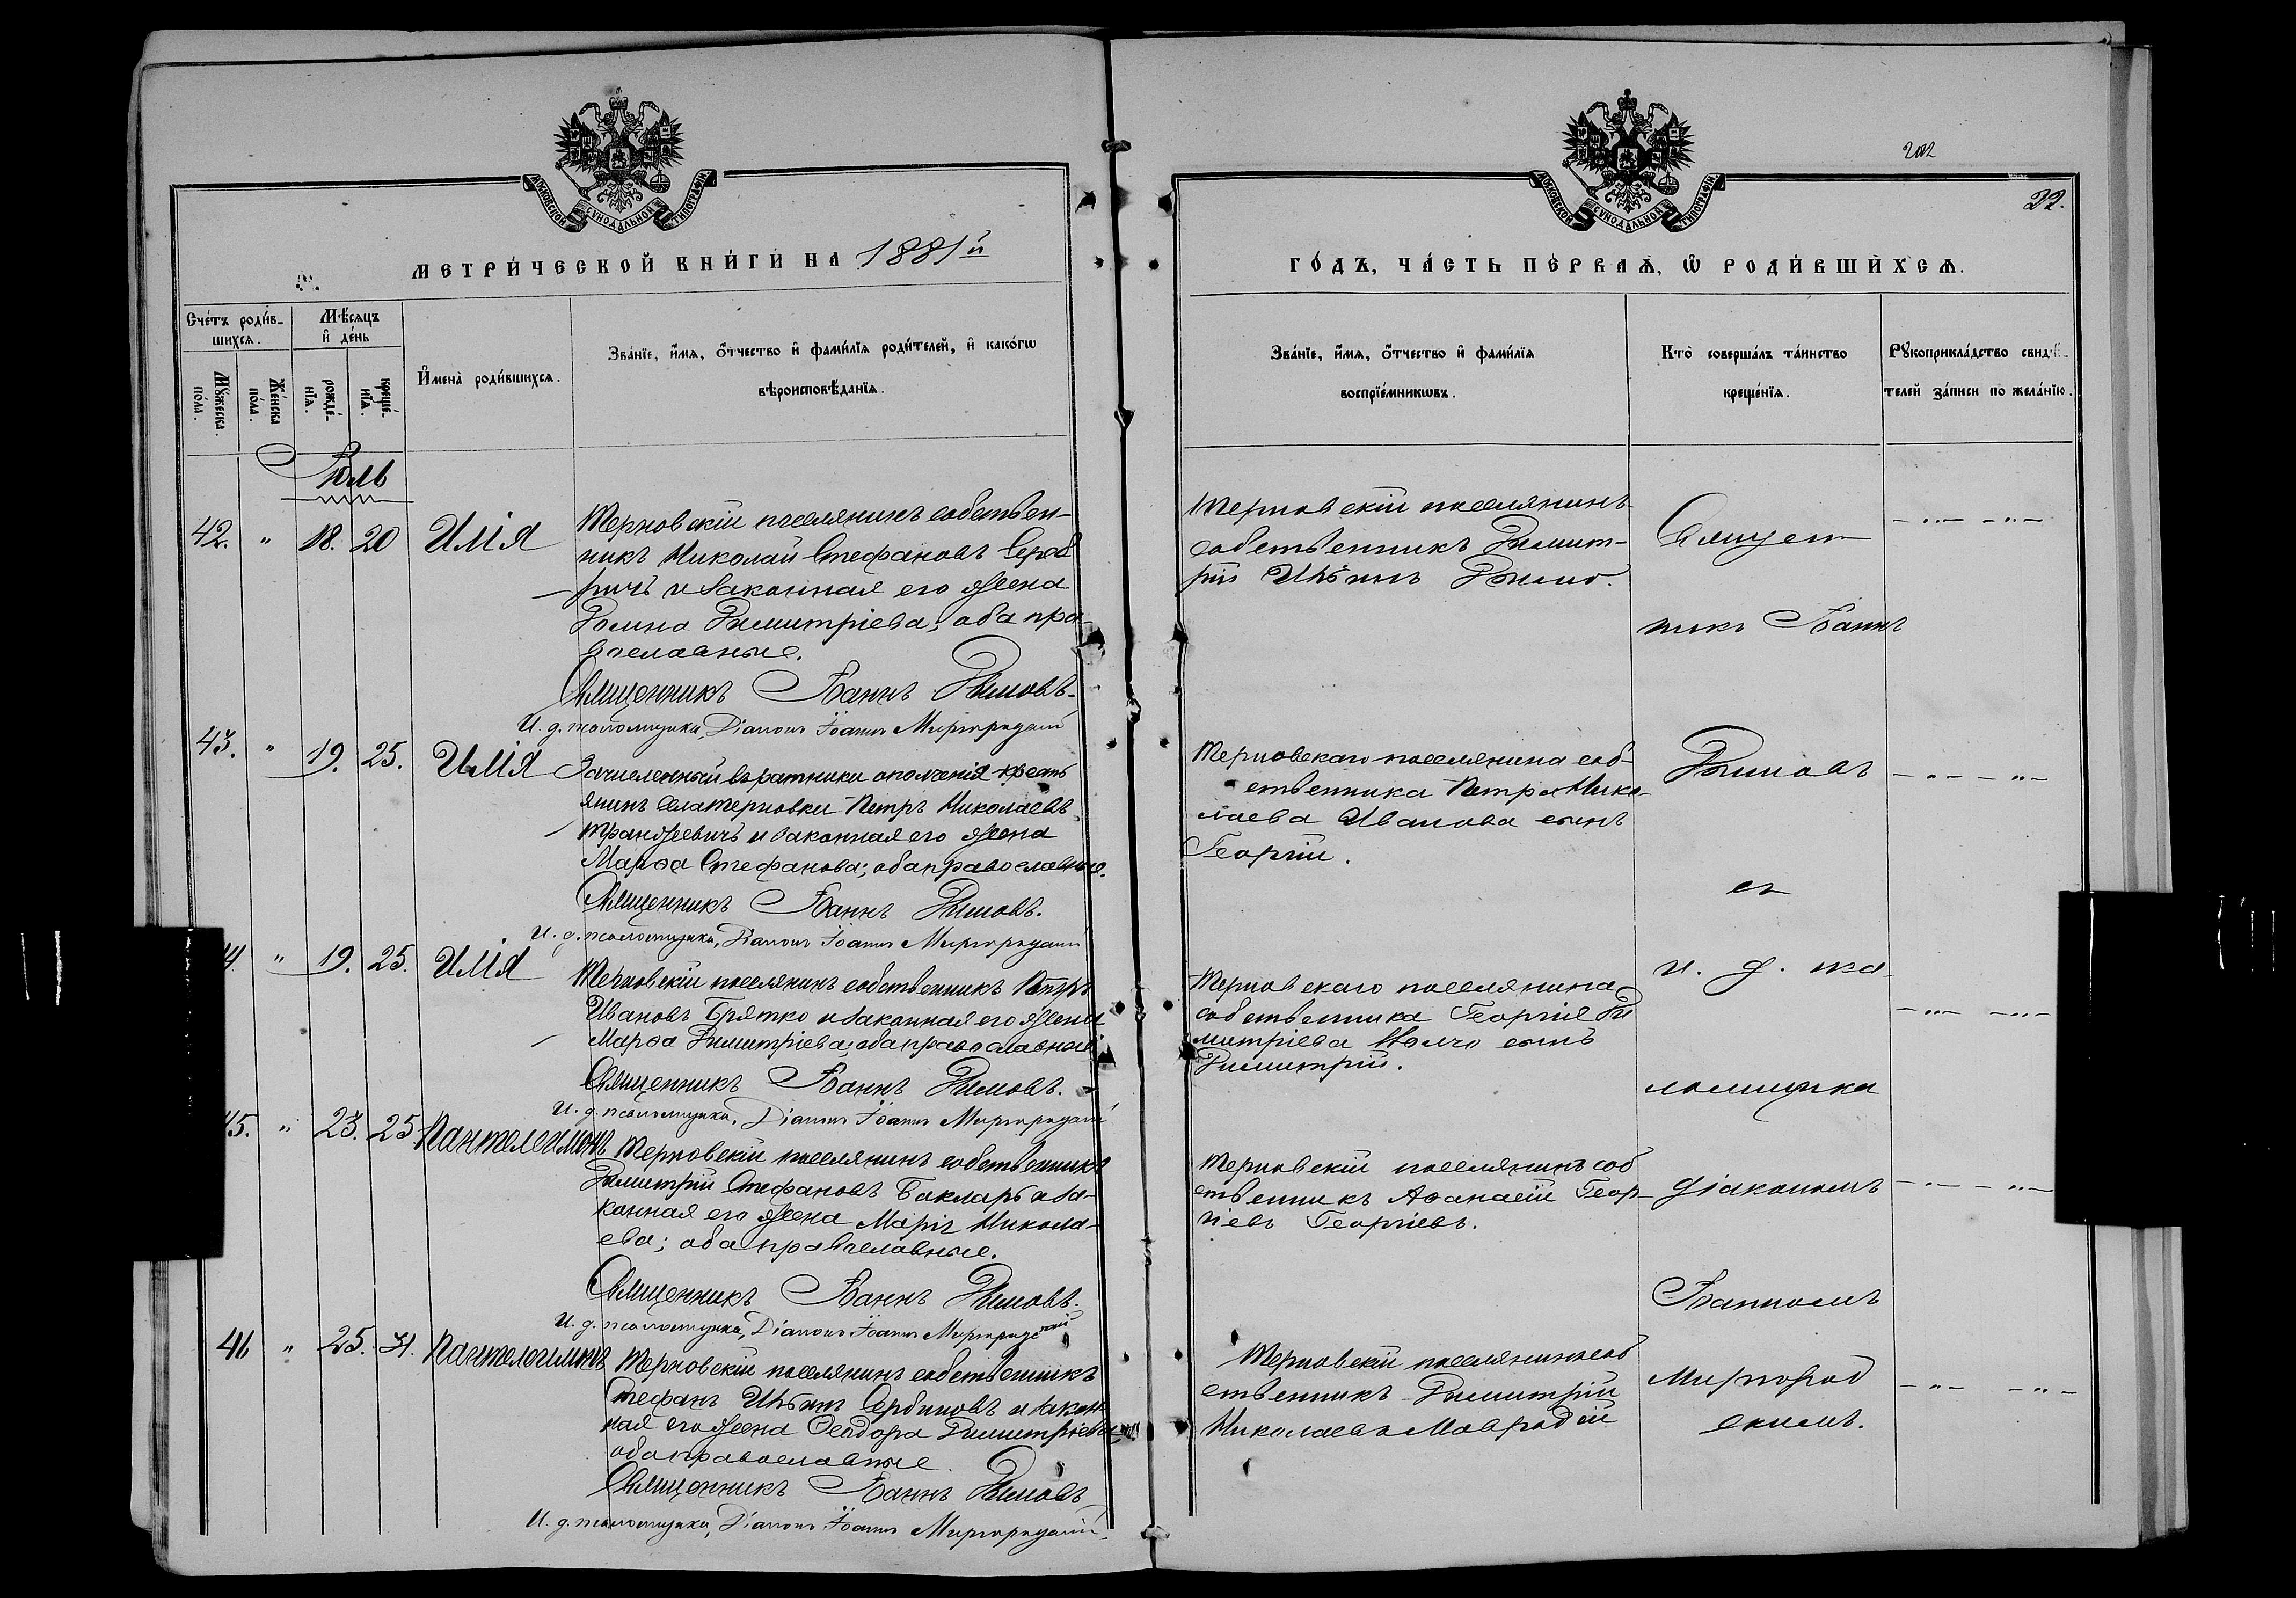 МОСКОВСКОЙ СѴНОДАЛЬНОЙ ТИПОГРАФІИ
МЕТРИ́ЧЕСКОЙ КНИ́ГИ НА 1881й
Сче́тъ роди́в-
шихсѧ.
Мꙋ́жеска по́ла.
Же́нска по́ла.
Мѣ́сѧцъ
и҆ де́нь
рожде́-
нїѧ.
креще́-
нїѧ.
И҆мена̀ роди́вшихсѧ.
Зва́нїе, и҆́мѧ, ѻ҆́тчество и҆ фами́лїѧ роди́телей, и҆ како́гѡ
вѣроисповѣ́данїѧ.
Юль
42. " 18. 20 Илія
Терновскій поселянинъ собствен-
никъ Николай Стефановъ
и законная его жена
Димитріева; оба пра-
вославные.
Священникъ Іоаннъ Димовъ.
И. д. псаломщика, Діаконъ Іоаннъ Миргородскій
43. " 19. 25. Илія
Зачисленный въ ратники ополченія крестъ
янинъ села Терновки Петръ Николаевъ
Транжеевичъ и законная его жена
Марѳа Стефанова; оба православные.
Священникъ Іоаннъ Димовъ.
И. д. псаломщика, Діаконъ Іоаннъ Миргородскій
4. " 19. 25. Илія
Терновскій поселянинъ собственникъ Петръ
Ивановъ Брятко и законная его жена
Марѳа Димитріева; оба православные
Священникъ Іоаннъ Димовъ.
И. д. псаломщика, Діаконъ Іоаннъ Миргородскій
5. " 23. 25 Пантелеимонъ
Терновскій поселянинъ собственникъ
Димитрій Стефановъ Бокларъ и за-
конная его жена Марія Никола-
ева; оба православные.
Священникъ Іоаннъ Димовъ.
И. д. псаломщика, Діаконъ Іоаннъ Миргородскій
46 " 25. 31. Пантелеимонъ
Терновскій поселянинъ собственникъ
Стефанъ Ильинъ Сербиновъ и закон-
ная его жена Ѳеодора Димитріева
оба православные
Священникъ Іоаннъ Димовъ
И. д. псаломщика, Діаконъ Іоаннъ Миргородскій.
22.
МОСКОВСКОЙ СѴНОДАЛЬНОЙ ТИПОГРАФІИ
ГО́ДЪ, ЧА́СТЬ ПЕ́РВАѦ, Ѡ҆ РОДИ́ВШИХСѦ.
Зва́нїе, и҆́мѧ, ѻ҆́тчество и҆ фами́лїѧ
воспрїе́мникѡвъ.
Кто̀ соверша́лъ та́инство
креще́нїѧ.
Рꙋкоприкла́дство свидѣ́-
телей за́писи по жела́нїю.
Терновскій поселянинъ
собственникъ Димит-
рій Ильинъ
Терновскаго поселянина соб-
ственника Петра Нико-
лаева Иванова сынъ
Георгій.
Терновскаго поселянина
собственника Георгія Ди
митріева сынъ
Димитрій.
Терновскій поселянинъ соб
ственникъ Аѳанасій Геор-
гіевъ Георгіевъ.
Терновскій поселянинъ соб
ственникъ Димитрій
Николаевъ Мавродій
Священ
никъ Іоаннъ
Димовъ
съ
и. д. пса-
ломщика
діакономъ
Іоанномъ
Миргород
скимъ.